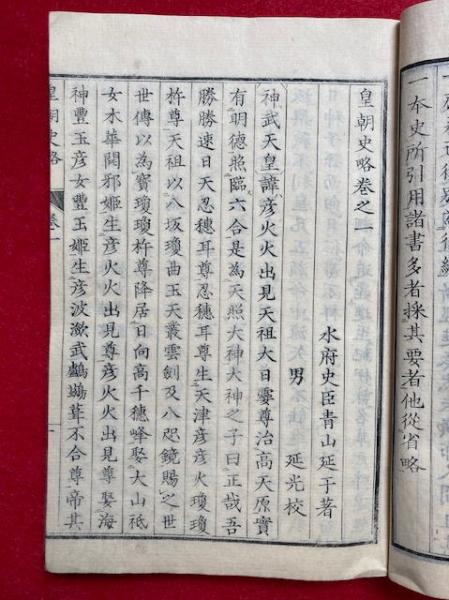 一本史所引用諸書多者採其要者他從省略
皇朝史略卷之一
水府史臣青山延于著
男 延光校
神武天皇諱彥火火出見天祖大日孁尊治高天原實
有明德照臨六合是為天照大神大神之子曰正哉吾
勝勝速日天忍穗耳尊忍穗耳尊生天津彥彥火瓊瓊
杵尊天祖以八坂瓊曲玉天叢雲劍及八咫鏡賜之世
世傳以為寶瓊瓊杵尊降居日向高千穗峰娶大山祇
女木華開邪姬生彥火火出見尊彥火火出見尊娶海
神豐玉彥女豐玉姬生彥波瀲武鸕鷀葺不合尊帝其
皇朝史略 卷一 一